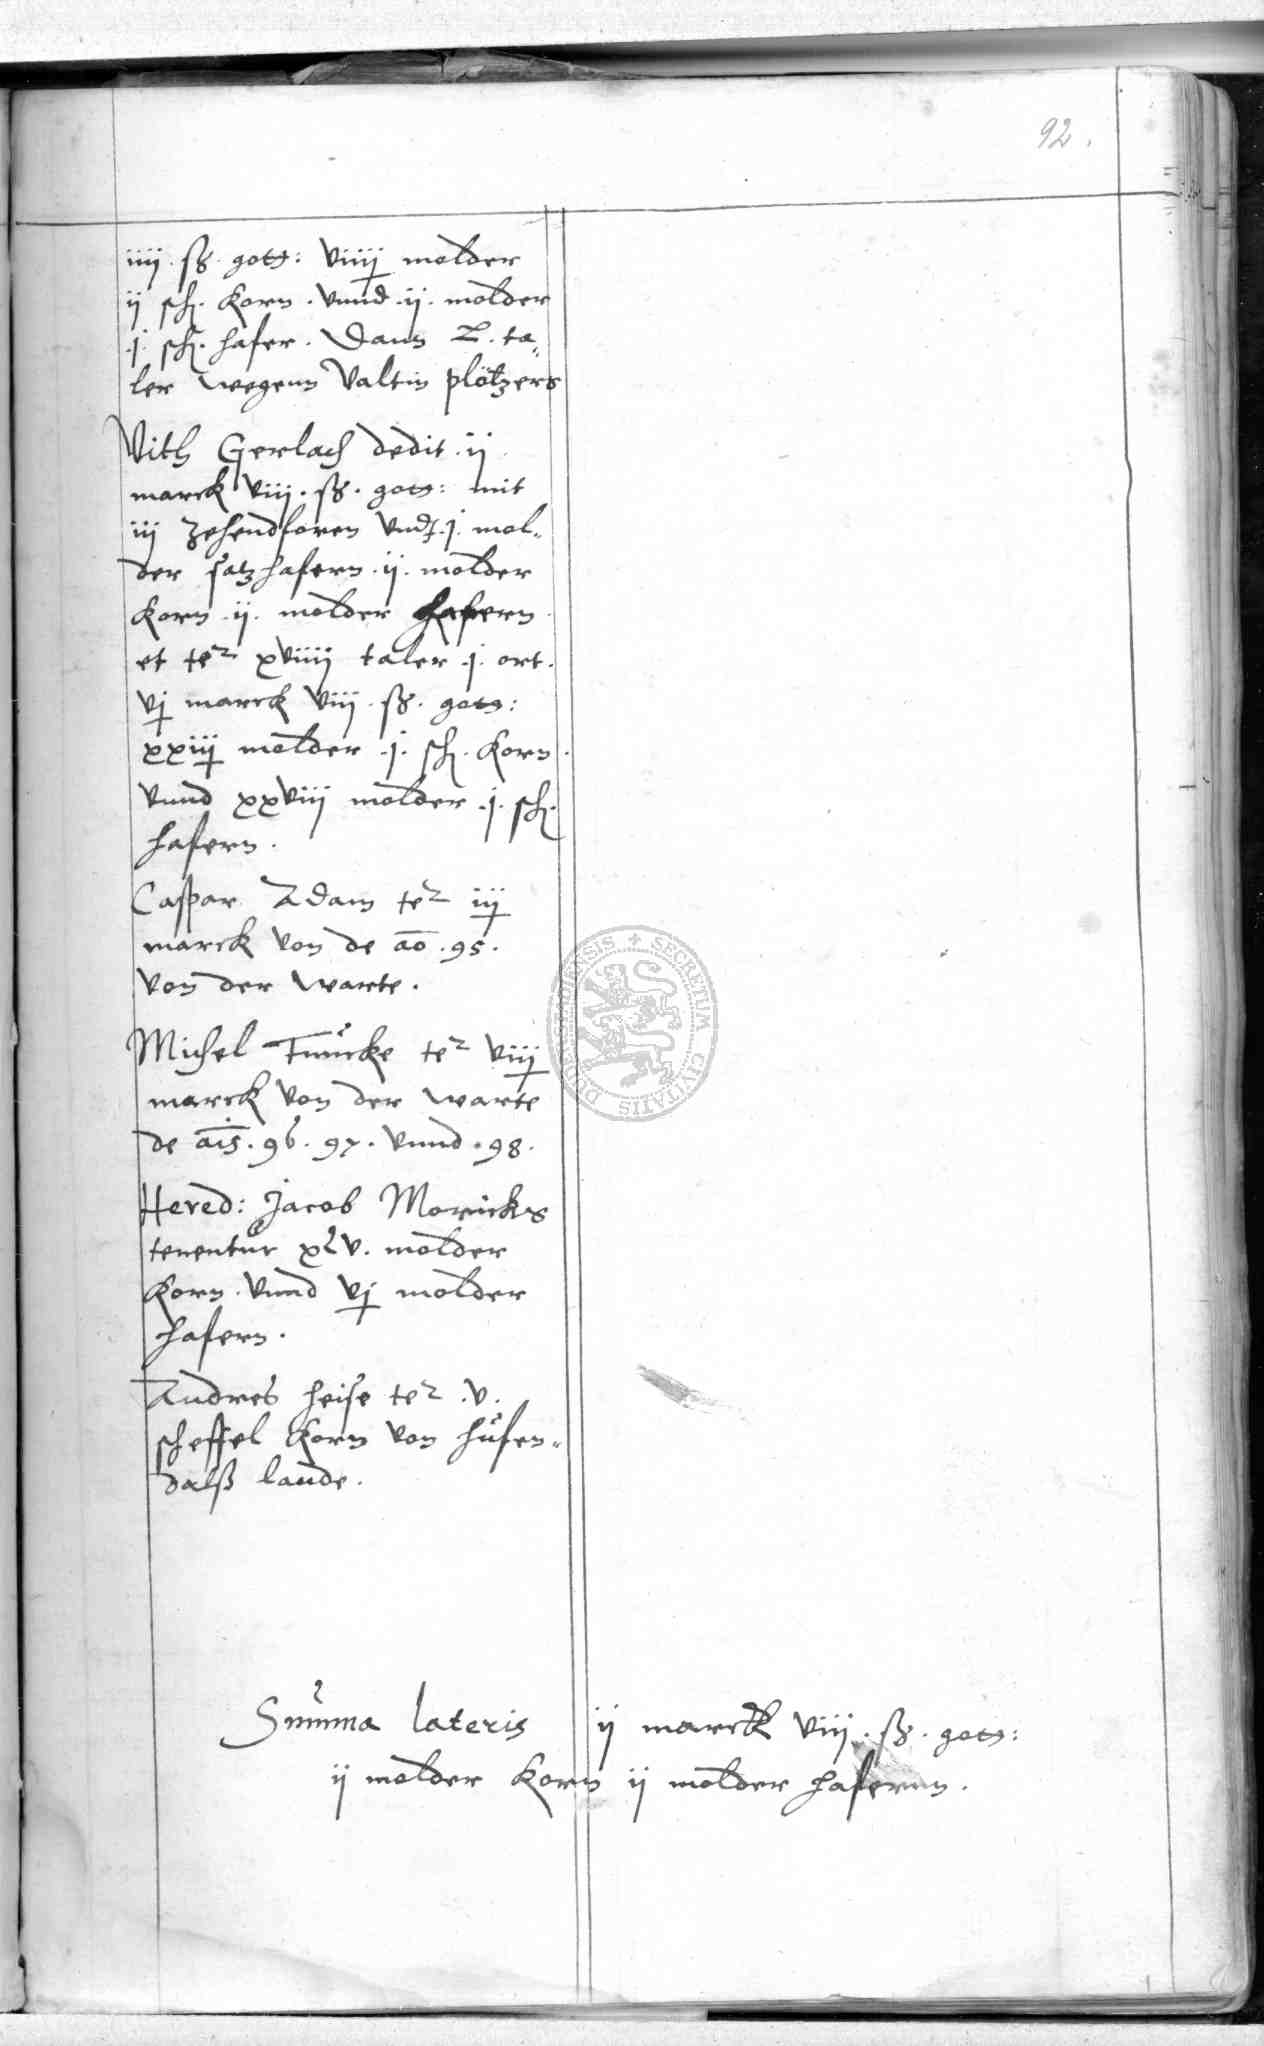 92.
iiij. ß. gott: viiij molder
ij sch. Korn. vnnd .ij. molder
.j. sch. hafer. Dann L. ta-
ler wegenn Valtin Plötzers
Vith Gerlach dedit .ij
marck viij. ß. gott: mit
iij Zehendhoren vnd .j. mol-
der satzhafern .ij. molder
Korn .ij. molder hafern
et ter xviiij taler .j. ort.
vj marck viij. ß. gott:
xxiij molder .j. sch. Korn.
vnnd xxviij molder .j. sch.
hafern.
Caspar Adam ter iij
marck von de ao .95.
von der Warte.
Michel Funcke ter viij
marck von der Warte
de ais. 96. 97. vnnd .98.
Hered: Jacob Morickes
tenentur xlv. molder
Korn. vnnd vj molder
hafern.
Andres Heise ter .v.
scheffel Korn von Hufen-
dalß lande.
Summa lateris ij marck viij. ß. gott:
ij molder Korn ij molder hafernn.
SECRETUM CIVITATIS